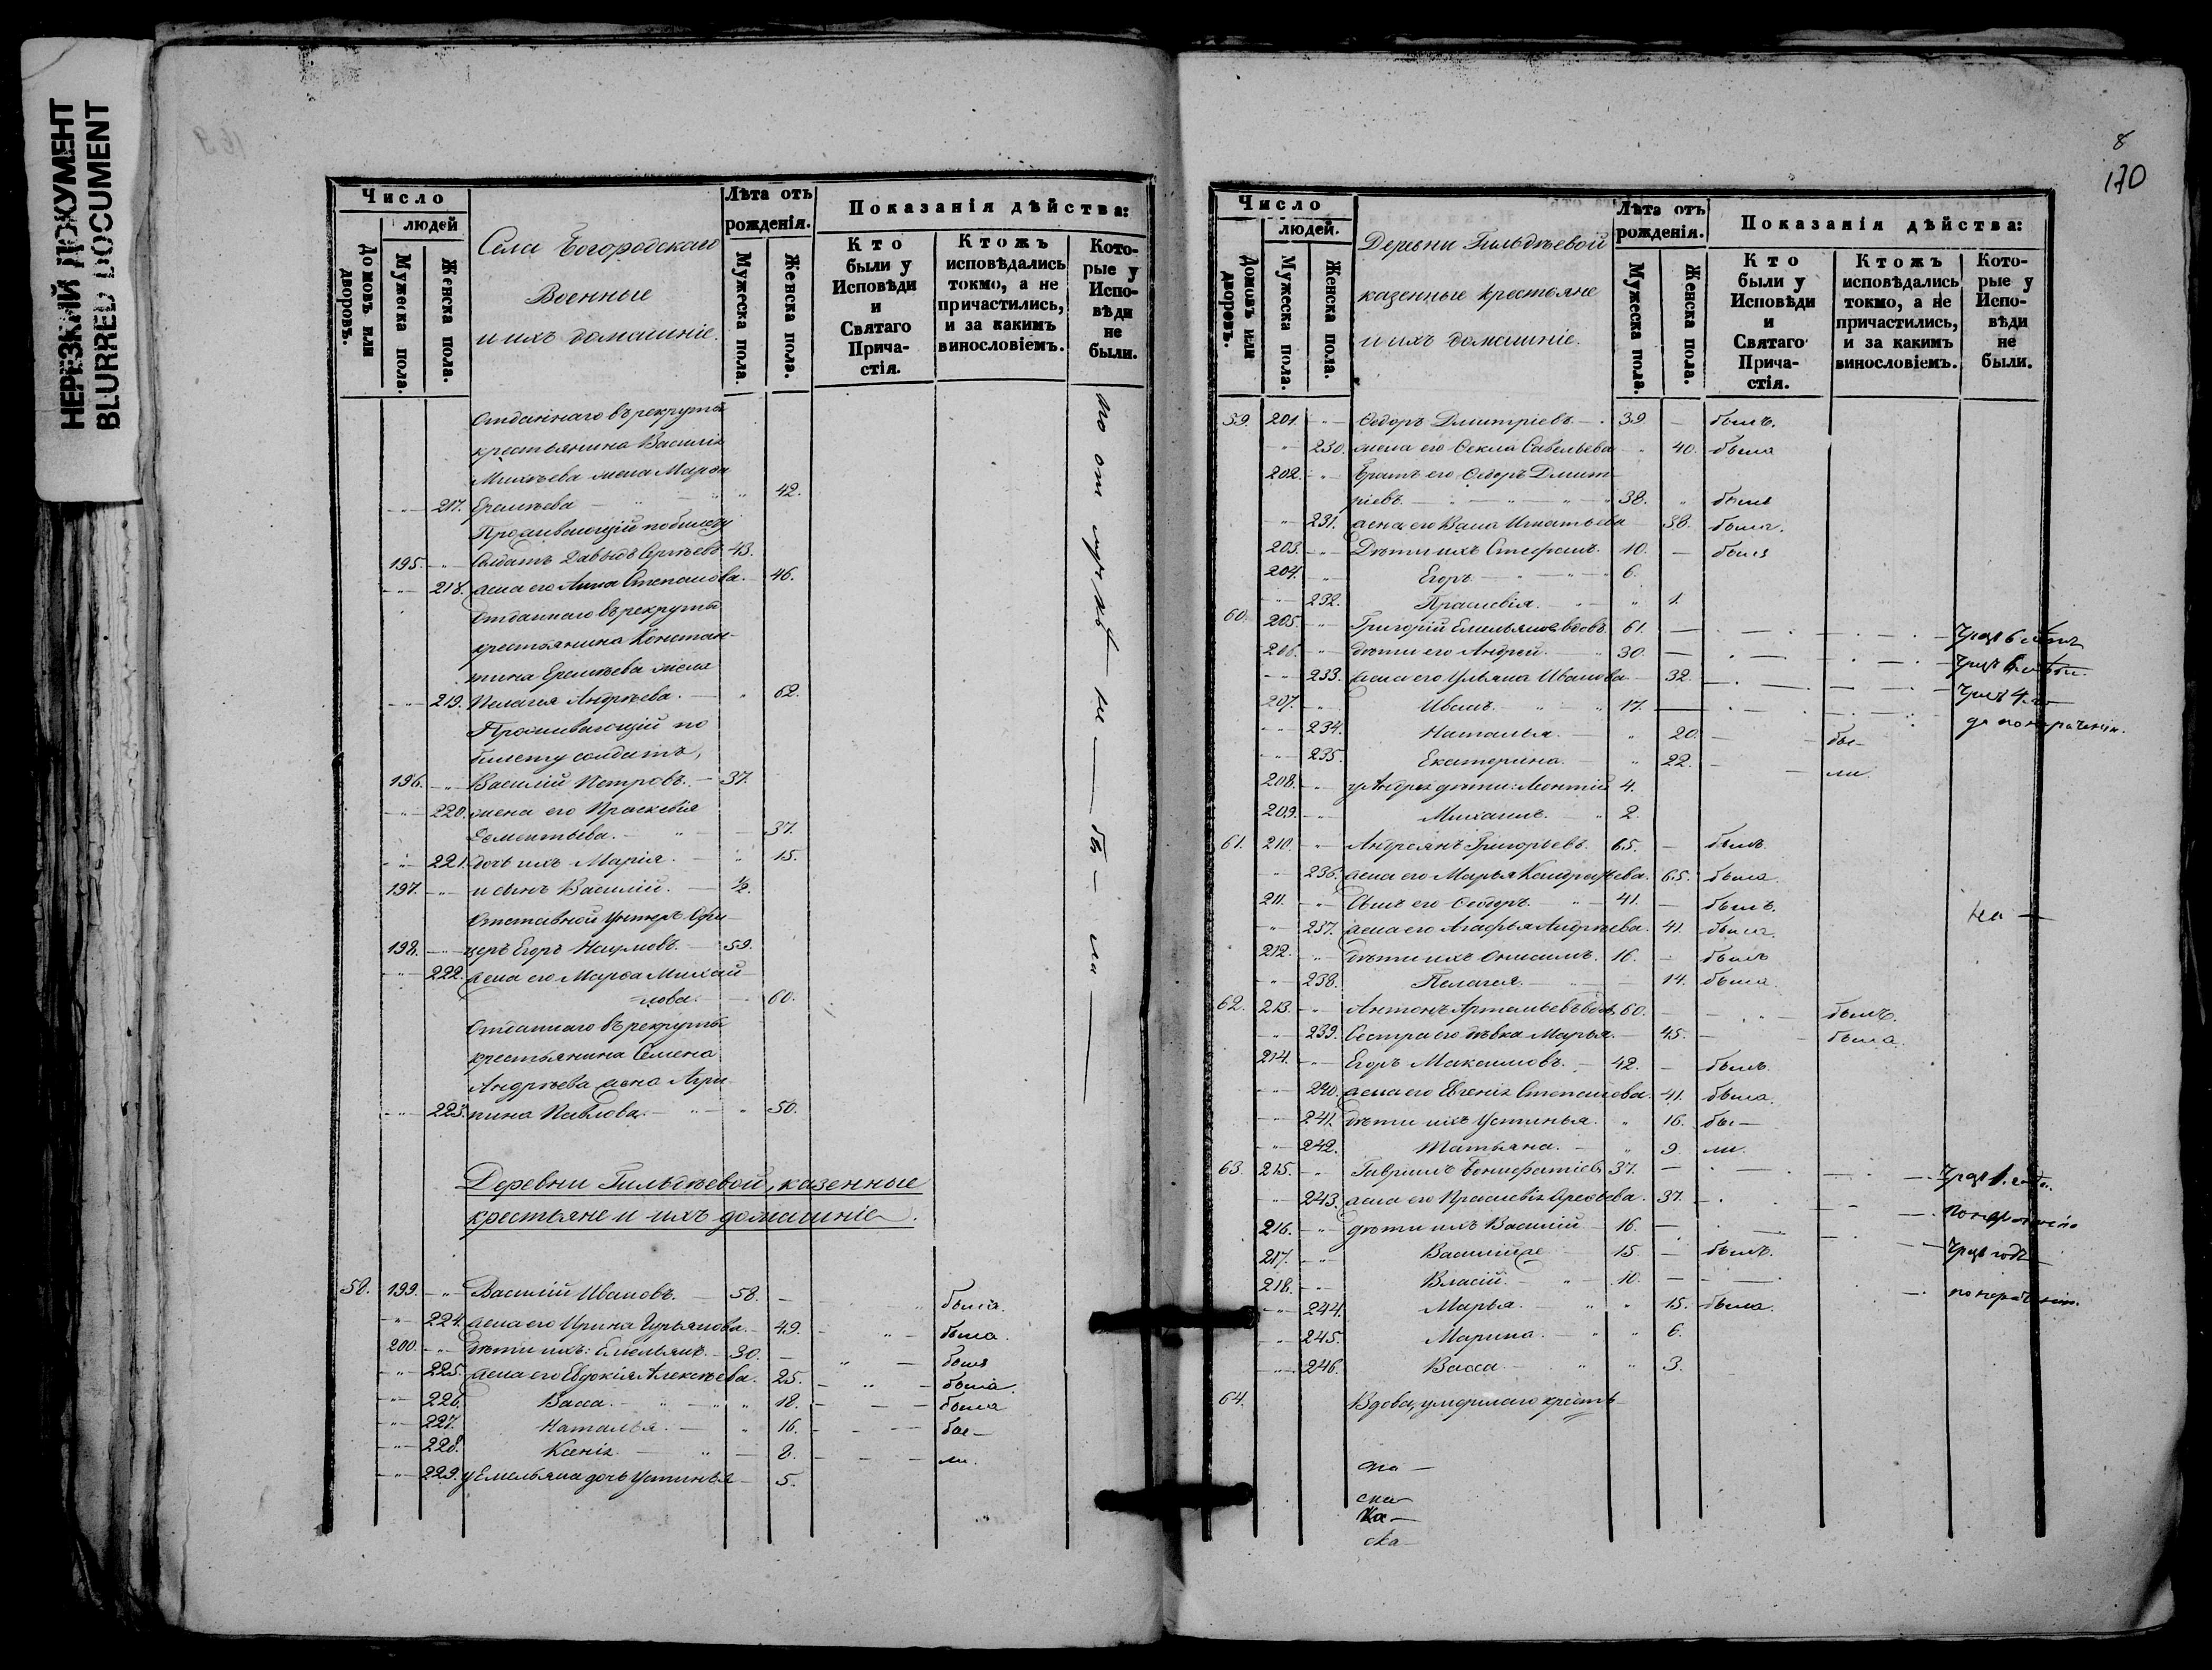 НЕРЕЗКИЙ ДОКУМЕНТ
BLURRED DOCUMENT
Число
людей
Домовъ или дворовъ.
Мужеска пола.
Женска пола.
Села Богородскаго
Военные
и ихъ домашніе.
Лѣта отъ рожденія.
Мужеска пола.
Женска пола.
Показанія дѣйства:
Кто были у Исповѣди и Святаго Прича-стія.
Ктожъ исповѣдались токмо, а не причастились, и за какимъ винословіемъ.
Кото-рые у Испо-вѣди не были.
Отданнаго въ рекруты
крестьянина Василія
Михѣева жена Марѳа
217. Еремѣева 42.
Проживающій по билету
195. Солдатъ Давыдъ Сергѣевъ 43.
218. жена его Анна Степанова. 46.
Отданнаго въ рекруты
крестьянина Констан-
тина Еремѣева жена
219. Пелагея Андрѣева. 62.
Проживающій по
билету солдатъ,
196. Василій Петровъ. 37.
220. жена его Праскевія
Дементьева. 37.
221. дочь ихъ Марія. 15.
197. и сынъ Василій. ½.
Отставной Унтеръ Офи-
198. церъ Егоръ Наумовъ. 59.
222. жена его Марѳа Михай-
лова. 60.
Отданнаго въ рекруты
крестьянина Семена
Андрѣева жена Агри-
223. пина Павлова. 50.
не бы-ли
Деревни Гильдѣевой, казенные
крестьяне и ихъ домашніе.
58. 199. Василій Ивановъ. 58. былъ.
224. жена его Ирина Гурьянова. 49. была.
200. дѣти ихъ: Емельянъ. 30. былъ
225. жена его Евдокія Алексѣева. 25. была.
226. Васса. 18. была
227. Наталья. 16. бы-
228. Ксенія. 8. ли.
229. у Емельяна дочь Устинья 5.
8
170
Число
людей.
Домовъ или дворовъ.
Мужеска пола.
Женска пола.
Деревни Гильдѣевой
казенные крестьяне
и ихъ домашніе.
Лѣта отъ рожденія.
Мужеска пола.
Женска пола.
Показанія дѣйства:
Кто были у Исповѣди и Святаго Прича-стія.
Ктожъ исповѣдались токмо, а не причастились, и за какимъ винословіемъ.
Кото-рые у Испо-вѣди не были.
59. 201. Ѳедоръ Дмитріевъ. 39. былъ.
230. жена его Ѳекла Савельева 40. была
202. Братъ его Ѳедоръ Дмит-
ріевъ. 38. былъ
231. жена его Васса Игнатьева 38. была.
203. Дѣти ихъ Стефанъ. 10. былъ
204. Егоръ. 6.
232. Праскевія. 1.
60. 205. Григорій Емельяновъ вдовъ. 61.
206. дѣти его Андрей. 30.
233. жена его Ульяна Иванова 32.
207. Иванъ. 17. по нерачѣнію.
234. Наталья. 20. бы-
235. Екатерина. 22. ли.
208. у Андрея дѣти: Леонтій 4.
209. Михаилъ. 2.
61. 210. Андреянъ Григорьевъ. 65. былъ.
236. жена его Марья Кондратьева. 65. была.
211. Сынъ его Ѳедоръ. 41. былъ.
237. жена его Агафья Андрѣева. 41. была.
212. дѣти ихъ Онисимъ. 16. былъ
238. Пелагея. 14. была.
62. 213. Антонъ Артемьевъ вдовъ 60. былъ.
239. Сестра его дѣвка Марья. 45. была.
214. Егоръ Максимовъ. 42. былъ.
240. жена его Евгенія Степанова. 41. была.
241. дѣти ихъ Устинья. 16. бы-
242. Татьяна. 9. ли.
63. 215. Гавріилъ Бонифатіевъ 37.
243. жена его Праскевія Арефьева. 37.
216. дѣти ихъ Василій. 16. по нерачѣнію
217. Василій же 15. былъ.
218. Власій. 10.
244. Марья. 15. была. по нерачѣнію.
245. Марина. 6.
246. Васса. 3.
64. Вдова, умершаго кресть-